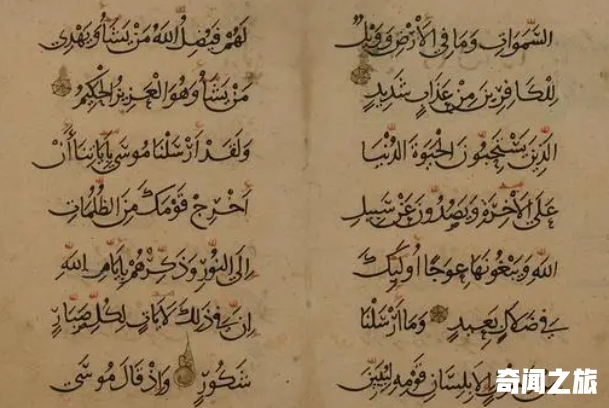 السَّمَوَاتِ وَمَا فِي الْأَرْضِ وَوَيْلٌ
لِلْكَافِرِينَ مِنْ عَذَابٍ شَدِيدٍ
الَّذِينَ يَسْتَحِبُّونَ الْحَيَوةَ الدُّنْيَا
عَلَى الْآخِرَةِ وَيَصُدُّونَ عَنْ سَبِيلِ
اللهِ وَيَبْغُونَهَا عِوَجًا أُولَئِكَ
فِي ضَلَالٍ بَعِيدٍ وَمَا أَرْسَلْنَا
إِلَّا بِلِسَانِ قَوْمِهِ لِيُبَيِّنَ
لَهُمْ فَيُضِلُّ اللهُ مَنْ يَشَاءُ وَيَهْدِي
مَنْ يَشَاءُ وَهُوَ الْعَزِيزُ الْحَكِيمُ
وَلَقَدْ أَرْسَلْنَا مُوسَى بِآيَاتِنَا أَنْ
أَخْرِجْ قَوْمَكَ مِنَ الظُّلُمَاتِ
إِلَى النُّورِ وَذَكِّرْهُمْ بِأَيَّامِ اللهِ
إِنَّ فِي ذَلِكَ لَآيَاتٍ لِكُلِّ صَبَّارٍ
شَكُورٍ وَإِذْ قَالَ مُوسَى
奇闻之旅